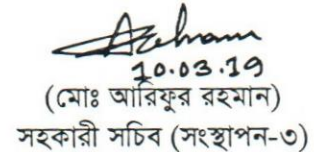 10.03.19
(মোঃ আরিফুর রহমান)
সহকারী সচিব (সংস্থাপন-৩)